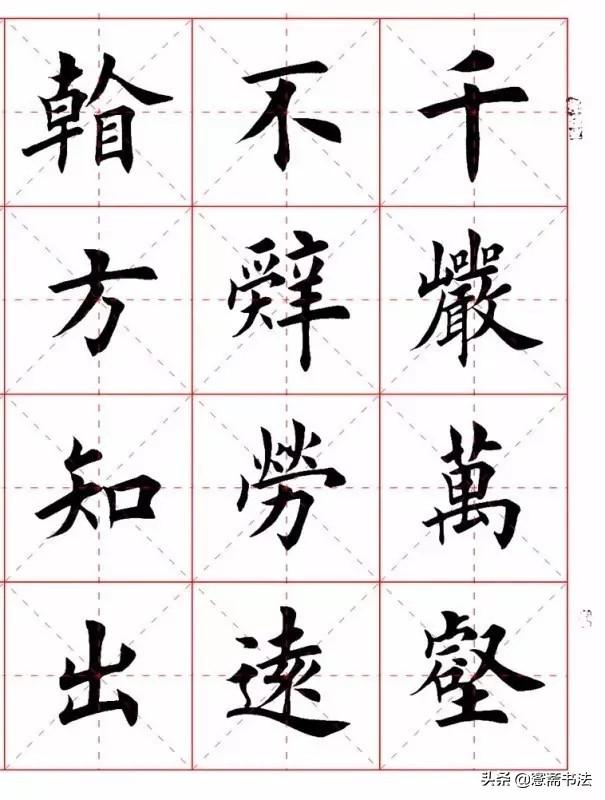 千巖萬壑
不辭勞遠
看方知出
头条 @寋斋书法